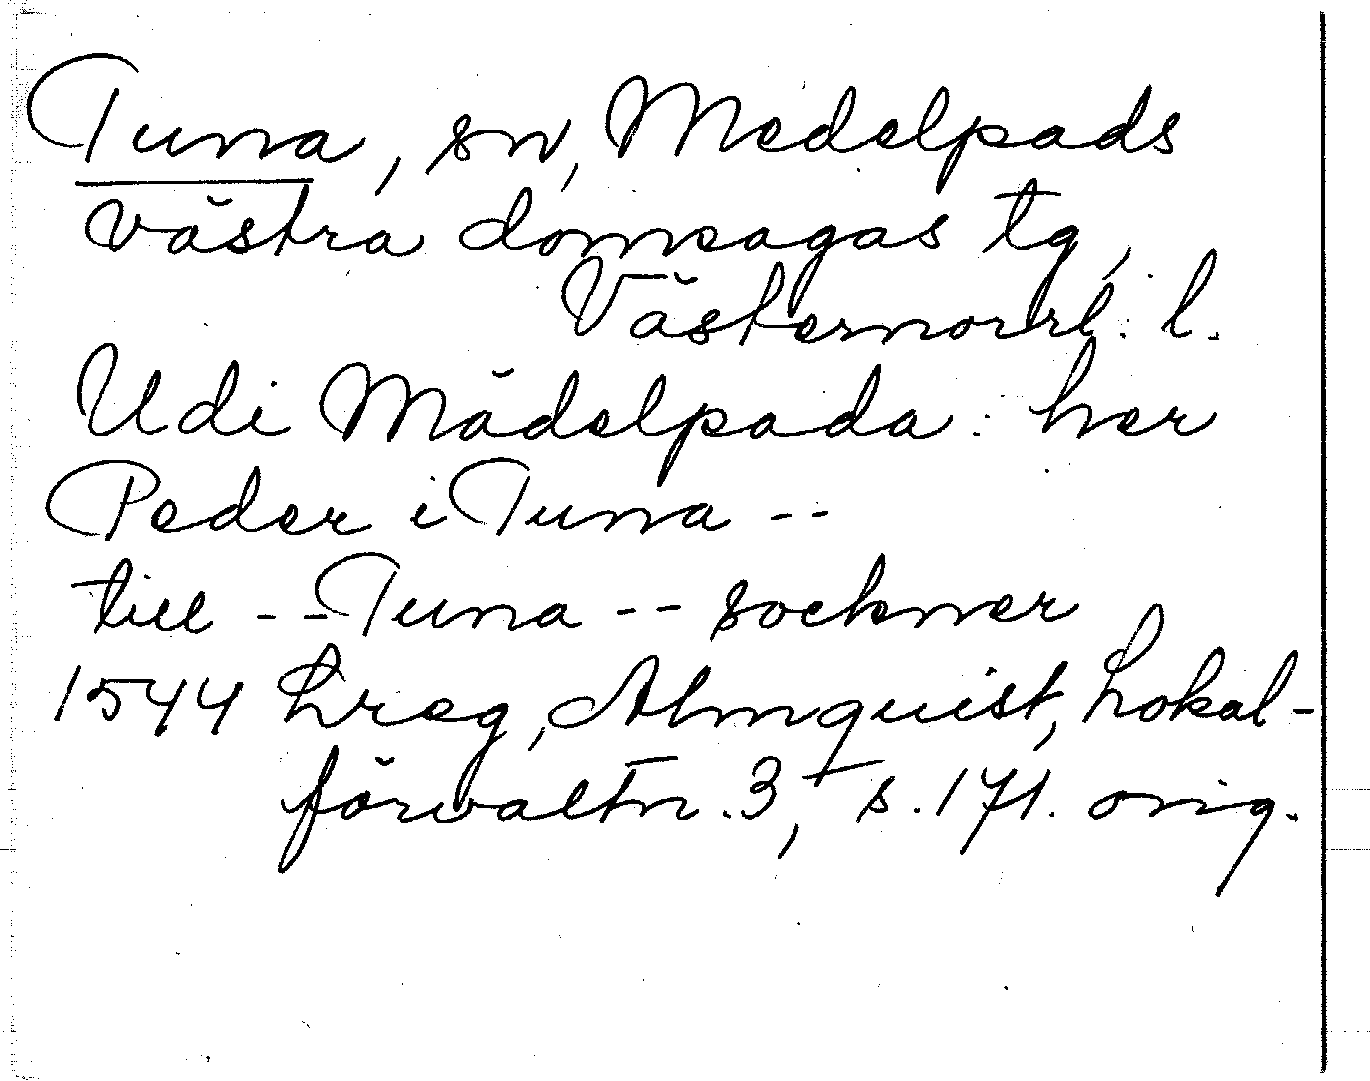 Tuna, sn, Medelpads
västra domsagas tg,
Västernorrl. l.
Udi Mädelpada: her
Peder i Tuna --
till -- Tuna -- sockner
1544 Lreg, Almquist, Lokal-
förvaltn. 3, s. 171. orig.